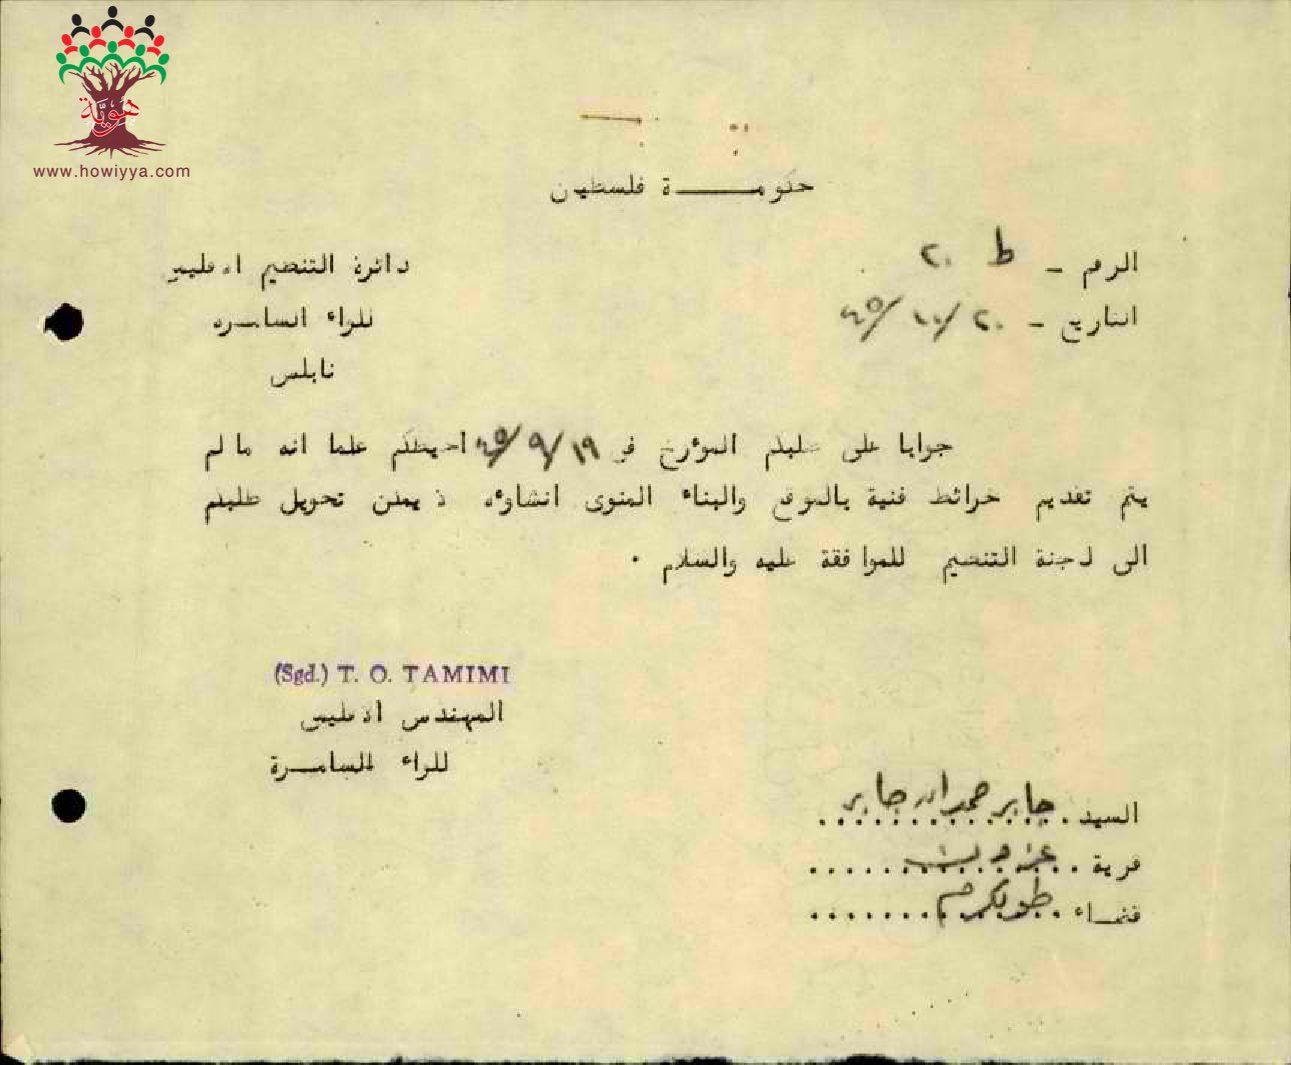 هوية
www.howiyya.com
حكومــة فلسطين
الرقم - ط ٢٠
دائرة التنظيم الاقليمي
التاريخ - ٢٠/ ١٠/ ٤٥
للواء السامره
نابلس
جوابا على طلبكم المؤرخ في ١٩/ ٩/ ٤٥ احيطكم علما انه ما لم
يتم تقديم خرائط فنية بالموقع والبناء المنوى انشاؤه لا يمكن تحويل طلبكم
الى لجنة التنظيم للموافقة عليه والسلام .
(Sgd.) T. O. TAMIMI
المهندس الاقليمي
للواء السامــرة
السيد جابر حمدالله جابر
قرية
قضــاء طولكرم